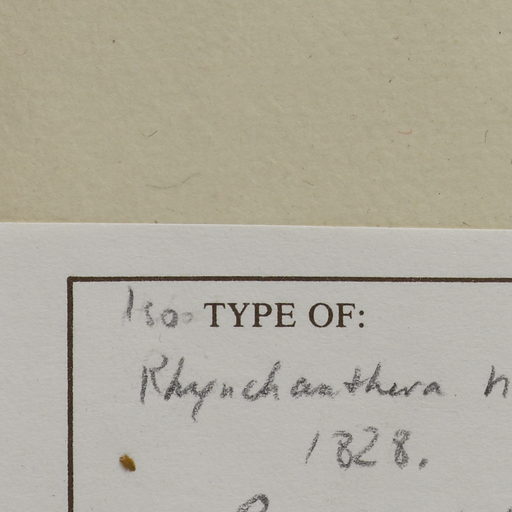 Iso TYPE OF:
Rhynchanthera
1828.